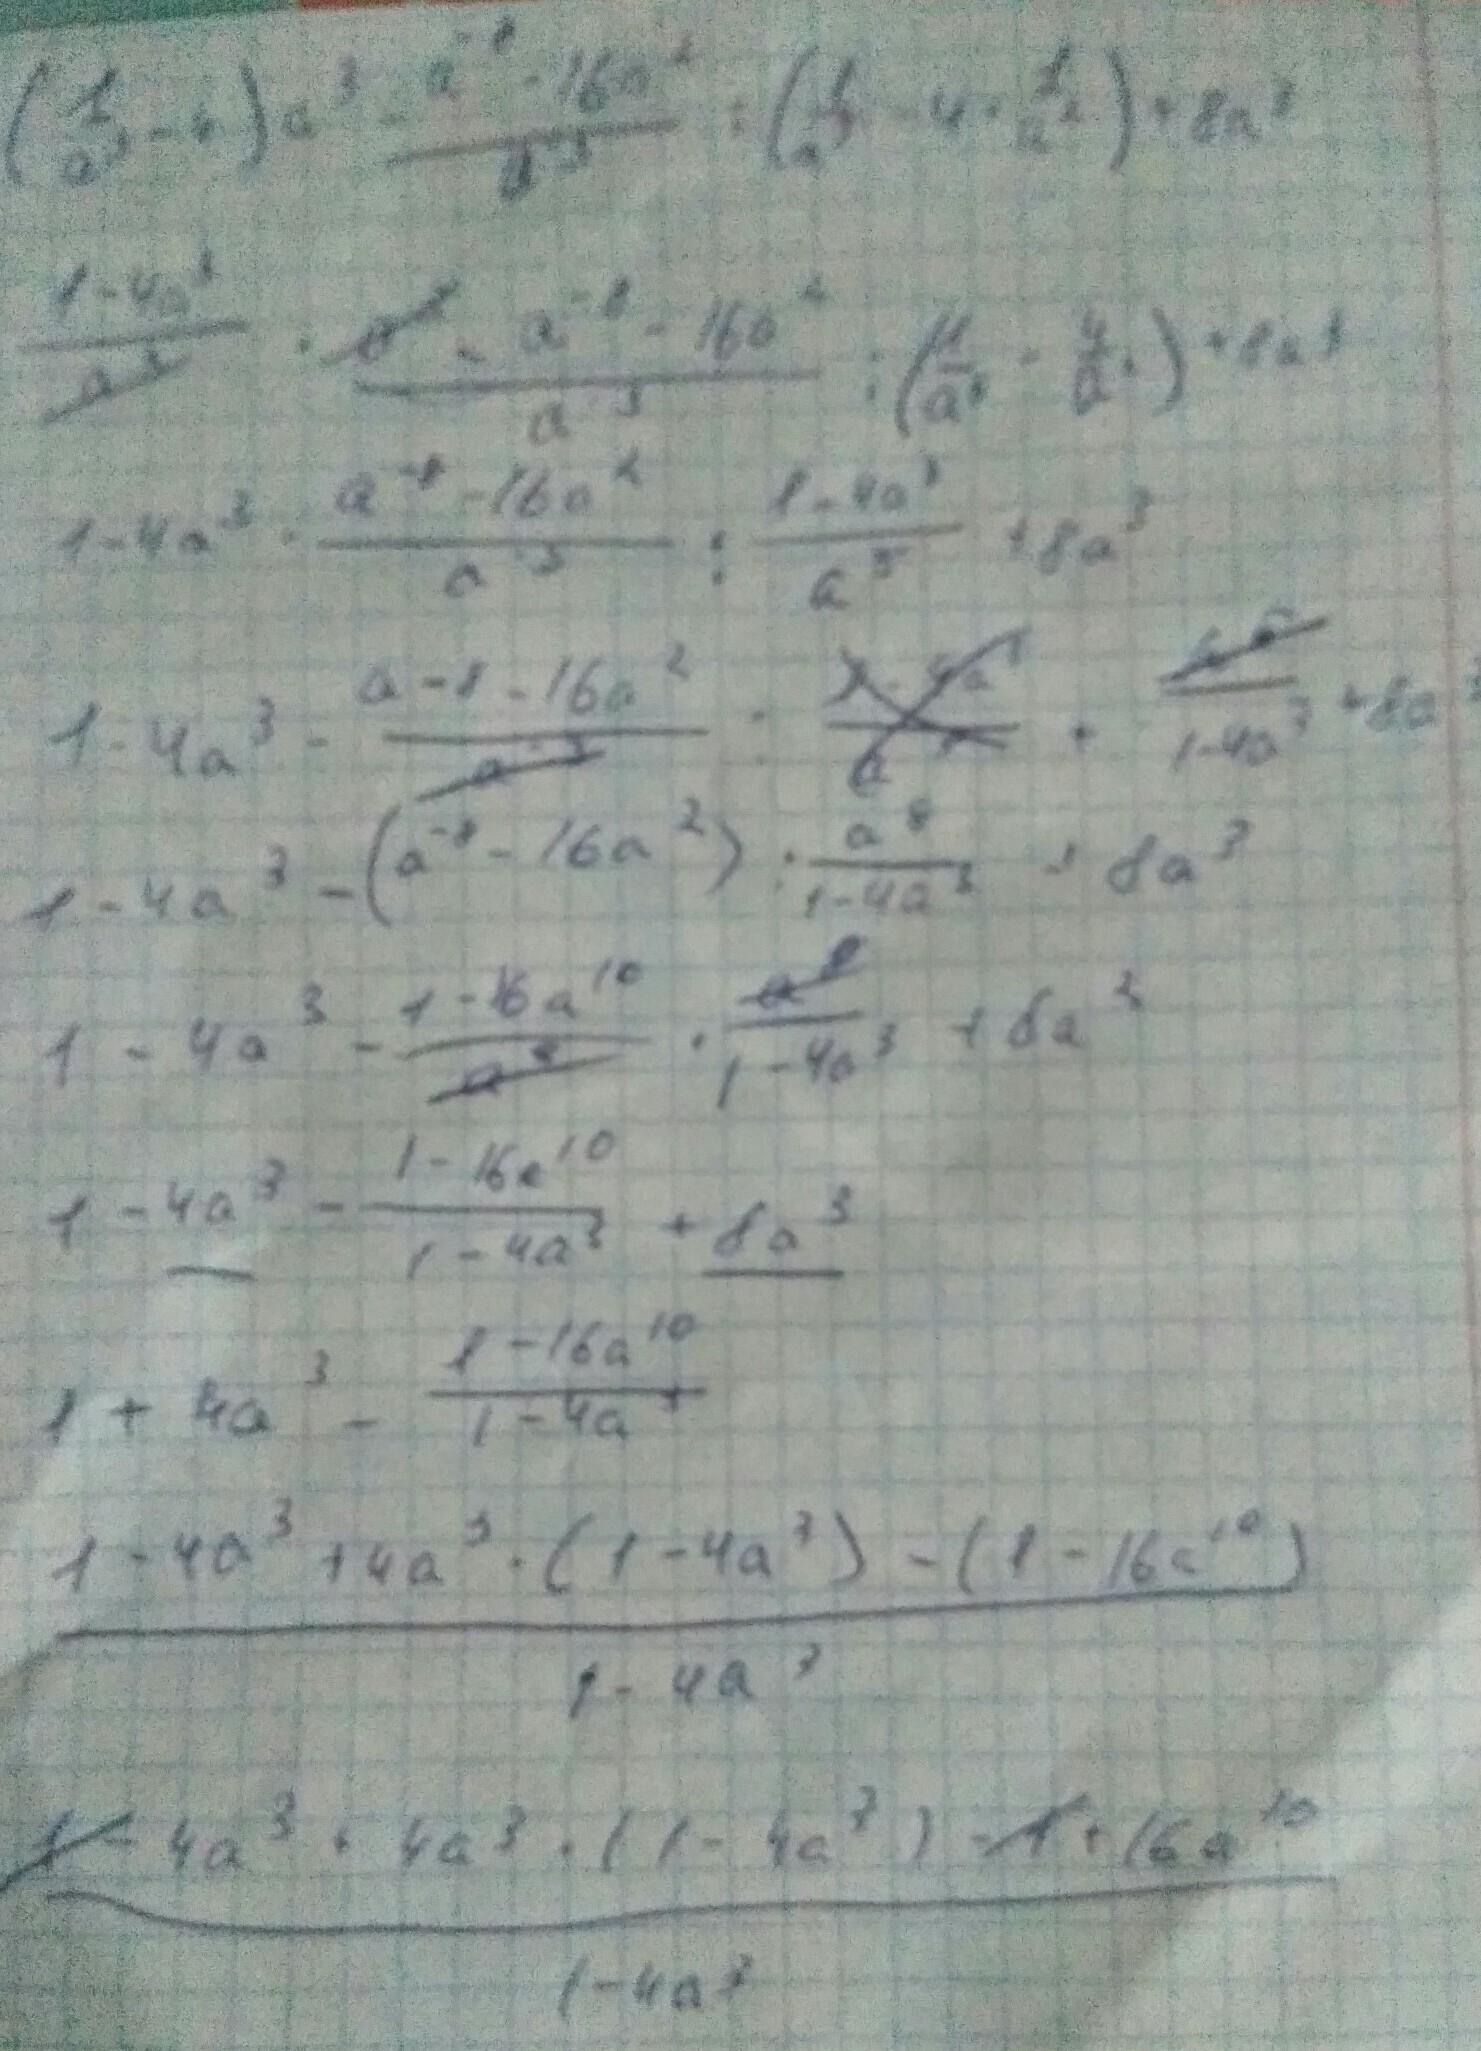 (1/a³ - 4) a³ - (a⁻⁸ - 16a²)/a⁻³ : (1/a⁵ - 4 · 1/a²) + 8a³
(1 - 4a³)/a³ · a³ - (a⁻⁸ - 16a²)/a⁻³ : (1/a⁵ - 4/a²) + 8a³
1 - 4a³ - (a⁻⁸ - 16a²)/a⁻³ : (1 - 4a³)/a⁵ + 8a³
1 - 4a³ - (a-8 - 16a²)/a⁻³ : /(1-4a³) + 8a³
1 - 4a³ - (a⁻⁸ - 16a²) · a⁸/(1-4a³) + 8a³
1 - 4a³ - (1 - 16a¹⁰)/a⁸ · a⁸/(1 - 4a³) + 8a³
1 - 4a³ - (1 - 16a¹⁰)/(1 - 4a³) + 8a³
1 + 4a³ - (1 - 16a¹⁰)/(1 - 4a³)
(1 - 4a³ + 4a³ · (1 - 4a³) - (1 - 16a¹⁰))/(1 - 4a³)
(1 - 4a³ + 4a³ · (1 - 4a³) - 1 + 16a¹⁰)/(1 - 4a³)